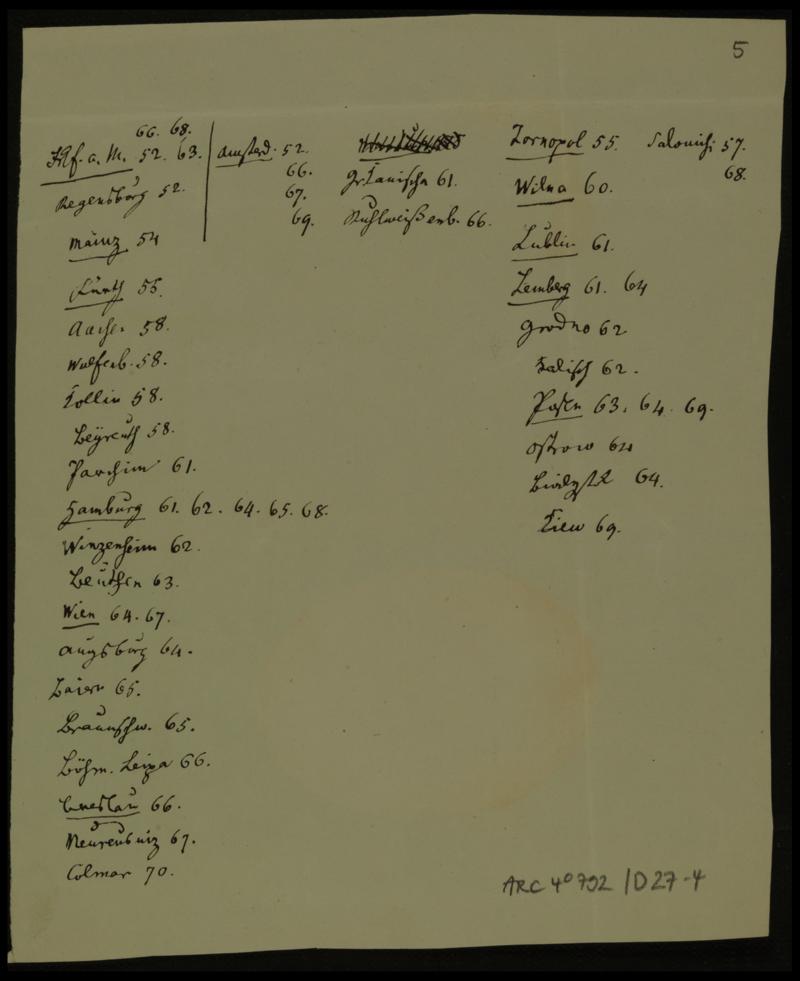 5
66. 68.
Frkf. a. M. 52. 63.
Regensburg 52.
Mainz 54
Fürth 55.
Aachen 58.
Wolfenb. 58.
Kollin 58.
Beyreuth 58.
Parchim 61.
Hamburg 61. 62. 64. 65. 68.
Winzenheim 62.
Beuthen 63.
Wien 64. 67.
Augsburg 64.
Baiern 65.
Braunschw. 65.
Böhm. Leipa 66.
Breslau 66.
67.
Colmar 70.
Amsterd. 52.
66.
67.
69.
Gr. Kanischa 61.
Stuhlweißenb. 66.
Tornopol 55.
Wilna 60.
Lublin 61.
Lemberg 61. 64
Grodno 62
Kalisch 62.
Posen 63. 64. 69.
Ostrow 64
64.
Kiew 69.
Salonichi 57.
68.
ARC 4° 792 / D27-4